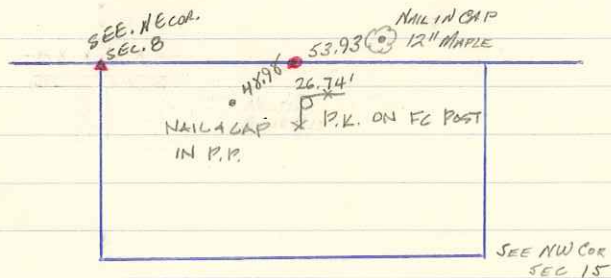 SEE. NE COR.
SEC. 8
NAIL IN CAP
53.93 12" MAPLE
48.98
26.74'
NAIL & CAP
IN P.P.
P.K. ON FC POST
SEE NW COR
SEC 15